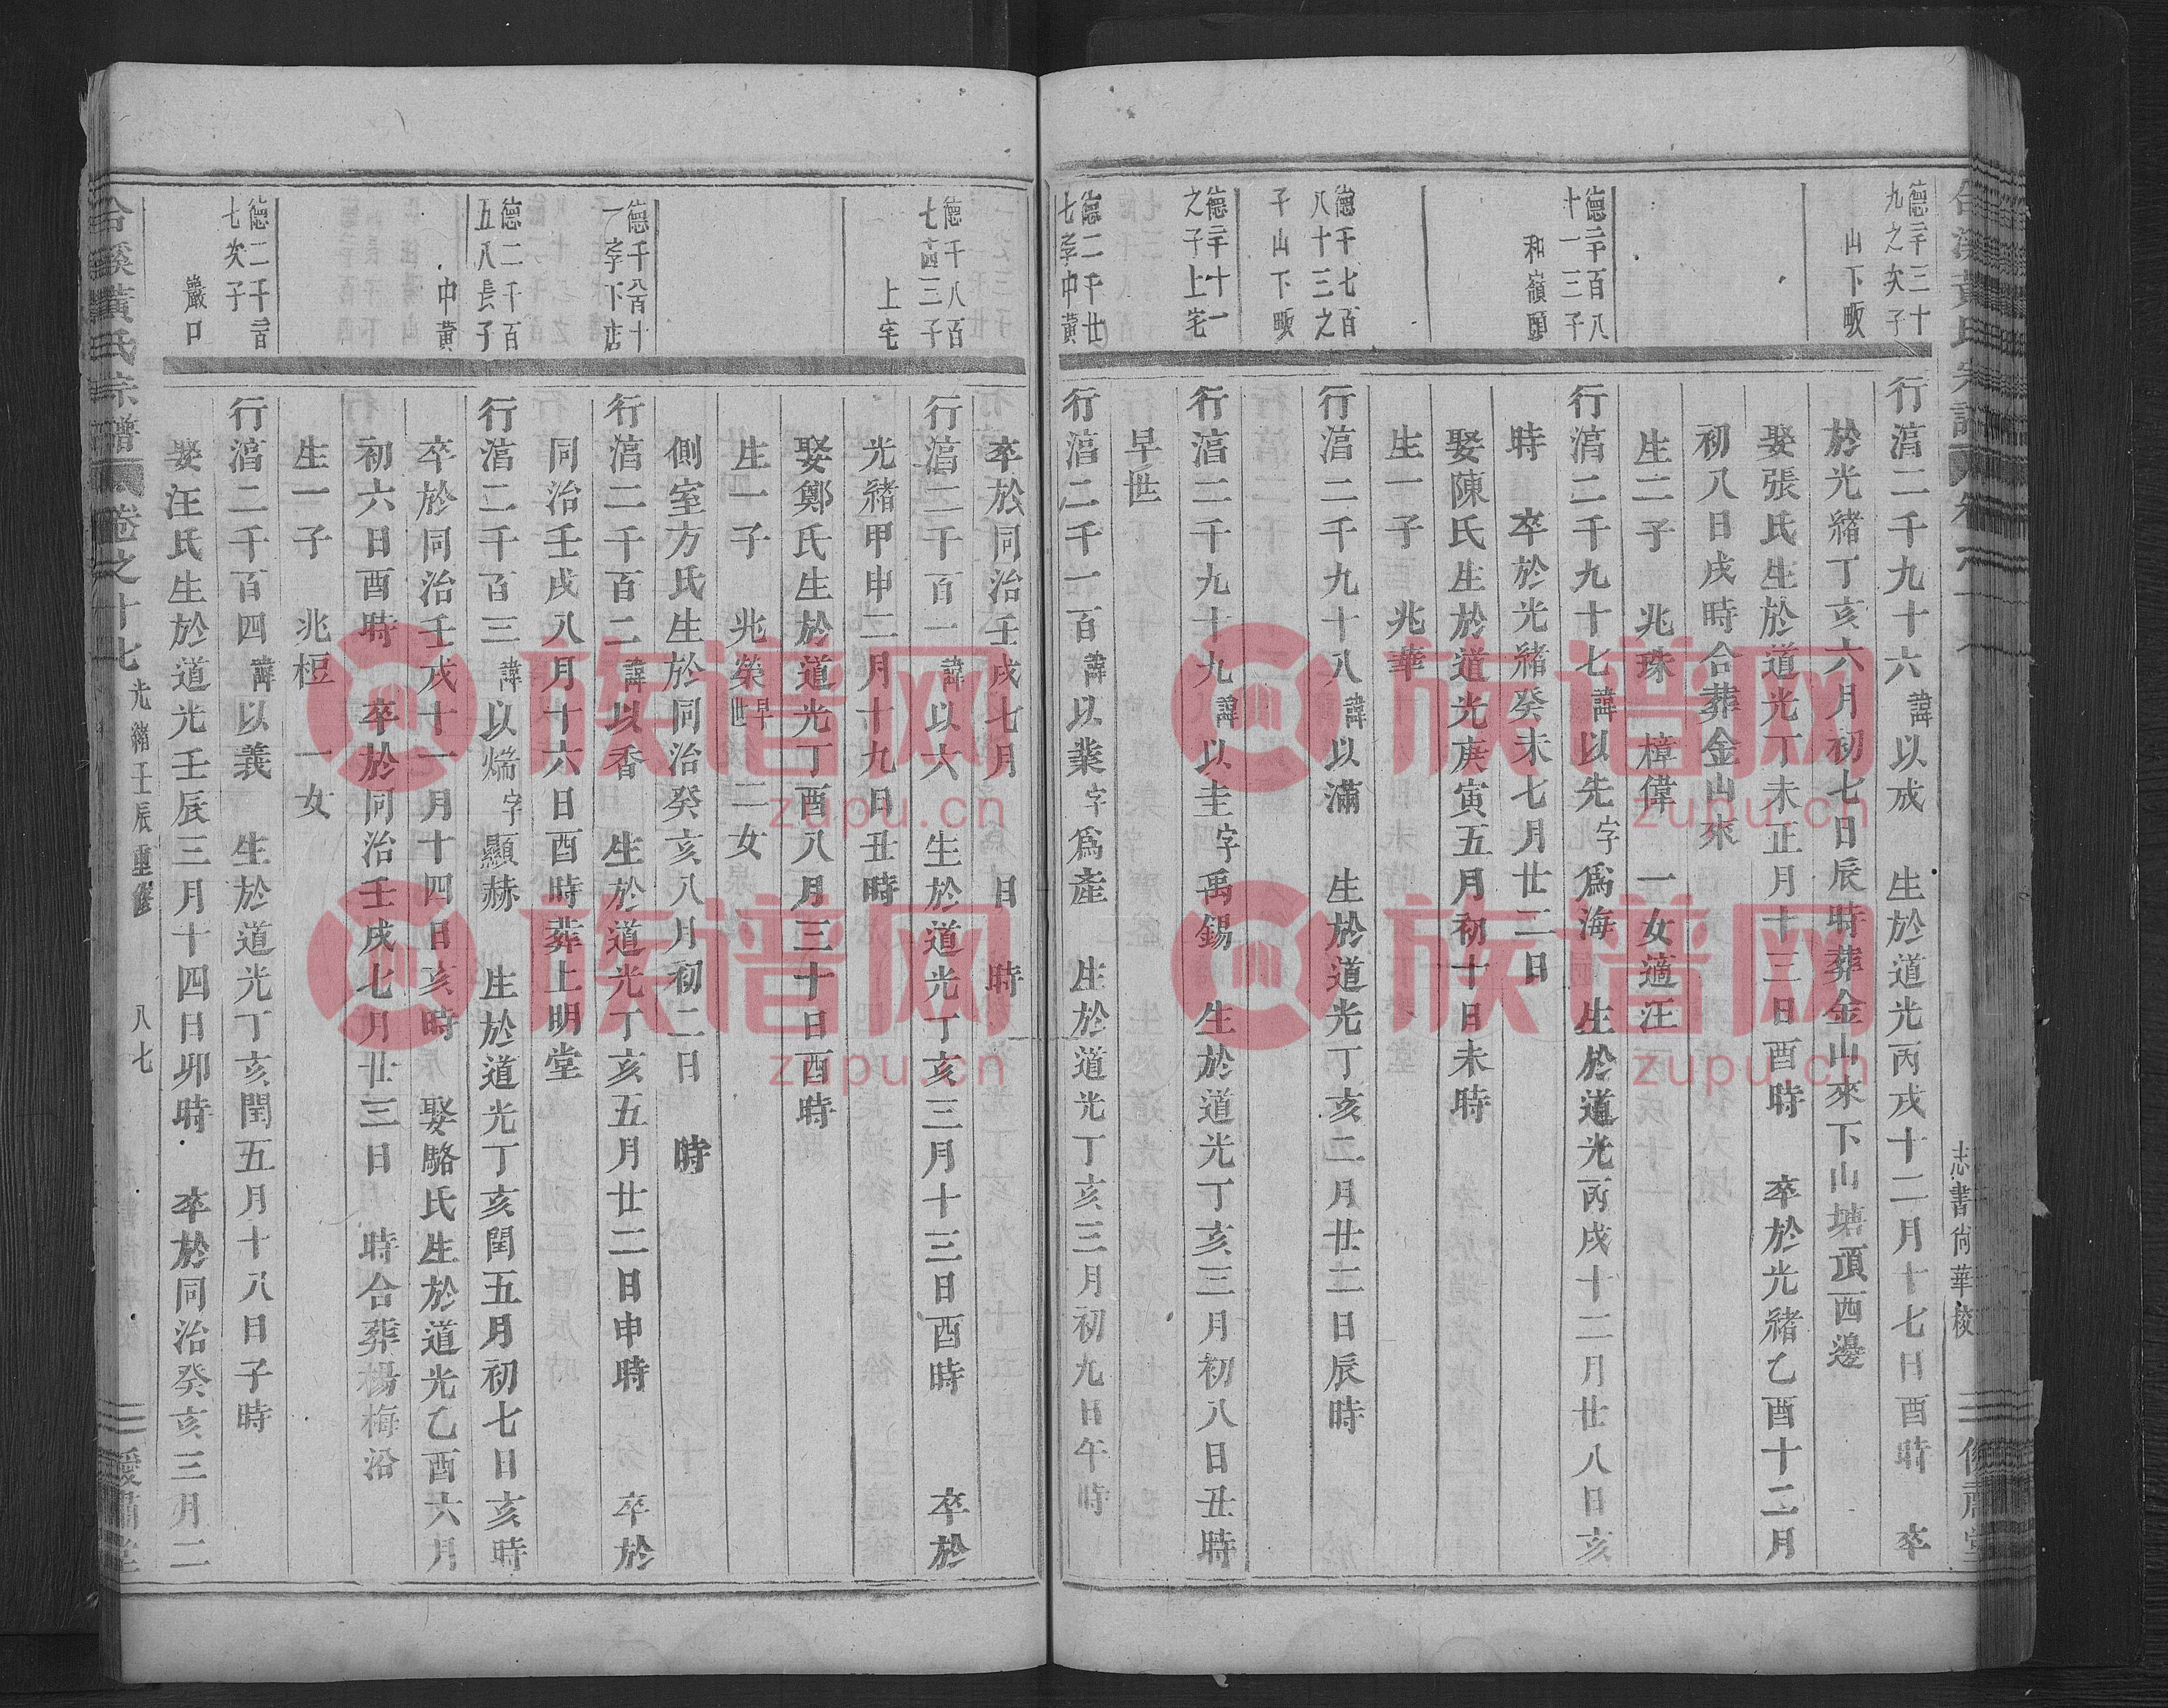 德二千三十
九之次子
山下畈
行湻二千九十六諱以成 生於道光丙戌十二月十七日酉時 卒
於光緒丁亥六月初七日辰時葬金山來下山塘頂西邊
娶張氏生於道光丁未正月十三日酉時 卒於光緒乙酉十二月
初八日戌時合葬金山來
生二子 兆珠 樟偉 一女適汪
德二千百八
十一三子
和嶺頭
行湻二千九十七諱以先字為海 生於道光丙戌十二月廿八日亥
時 卒於光緒癸未七月廿二日
娶陳氏生於道光庚寅五月初十日未時
生一子 兆華
德千七百
八十三之
子山下畈
行湻二千九十八諱以滿 生於道光丁亥二月廿二日辰時
德二千十一
之子上宅
行湻二千九十九諱以圭字禹錫 生於道光丁亥三月初八日丑時
早世
德二千廿
七孚中黃
行湻二千一百諱以業字為產 生於道光丁亥三月初九日午時
卒於同治壬戌七月 日 時
德千八百
七十四三子
上宅
行湻二千百一諱以六 生於道光丁亥三月十三日酉時 卒於
光緒甲申二月十九日丑時
娶鄭氏生於道光丁酉八月三十日酉時
生一子 兆榮早世 二女
側室方氏生於同治癸亥八月初二日 時
德千八百十
一字下店
行湻二千百二諱以香 生於道光丁亥五月廿二日申時 卒於
同治壬戌八月十六日酉時葬上明堂
德二千百
五八長子
中黃
行湻二千百三諱以煓字顯赫 生於道光丁亥閏五月初七日亥時
卒於同治壬戌十一月十四日亥時 娶駱氏生於道光乙酉六月
初六日酉時 卒於同治壬戌七月廿三日 時合葬楊梅沿
生一子 兆桓 一女
德二千二百
七次子
巖口
行湻二千百四諱以義 生於道光丁亥閏五月十八日子時
娶汪氏生於道光壬辰三月十四日卯時 卒於同治癸亥三月二
合溪黃氏宗譜 卷之十七 光緒壬辰重修 八七 愛肅堂
志書尙華校
族谱网
zupu.cn
族谱网
zupu.cn
族谱网
zupu.cn
族谱网
zupu.cn